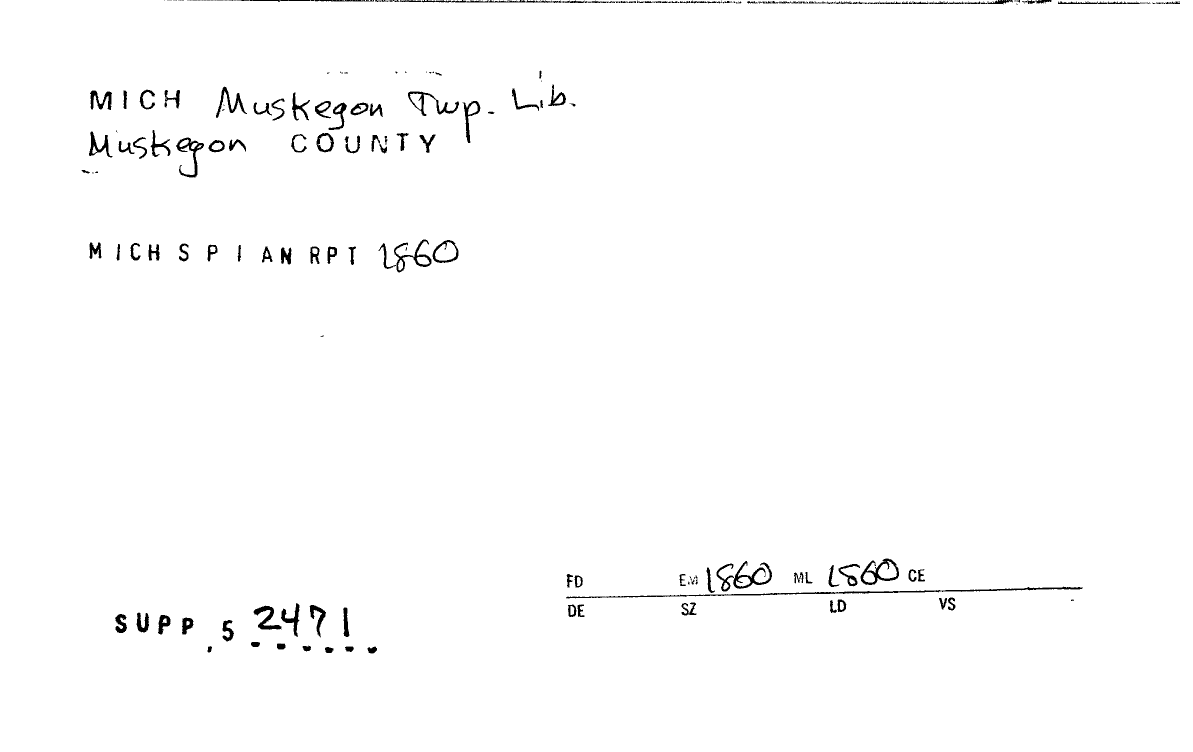 MICH Muskegon Twp. Lib.
Muskegon COUNTY
MICH S P I AN RPT 1860
FD EM 1860 ML 1860 CE
DE SZ LD VS
SUPP 5 2471